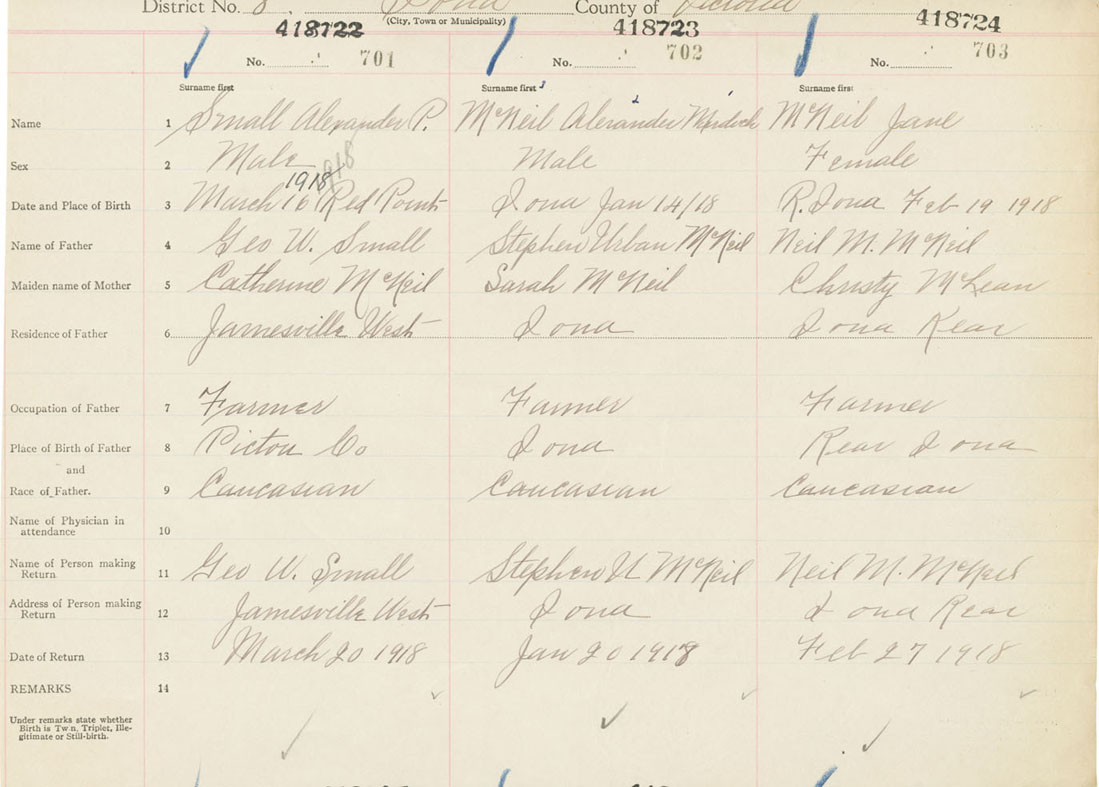 District No. 8 Iona County of Victoria
(City, Town or Municipality)
418722 418723 418724
No. 701 No. 702 No. 703
Surname first Surname first Surname first
Name 1 Small Alexander P. McNeil Alexander Murdock McNeil Jane
Sex 2 Male Male Female
1918 918
Date and Place of Birth 3 March 16 Red Point Iona Jan 14/18 R. Iona Feb 19 1918
Name of Father 4 Geo W. Small Stephen Urban McNeil Neil M. McNeil
Maiden name of Mother 5 Catherine McNeil Sarah McNeil Christy McLean
Residence of Father 6 Jamesville West Iona Iona Rear
Occupation of Father 7 Farmer Farmer Farmer
Place of Birth of Father 8 Pictou Co Iona Rear Iona
and
Race of Father. 9 Caucasian Caucasian Caucasian
Name of Physician in
attendance 10
Name of Person making
Return 11 Geo W. Small Stephen U McNeil Neil M. McNeil
Address of Person making
Return 12 Jamesville West Iona Iona Rear
Date of Return 13 March 20 1918 Jan 20 1918 Feb 27 1918
REMARKS 14
Under remarks state whether
Birth is Twin, Triplet, Ille-
gitimate or Still-birth.